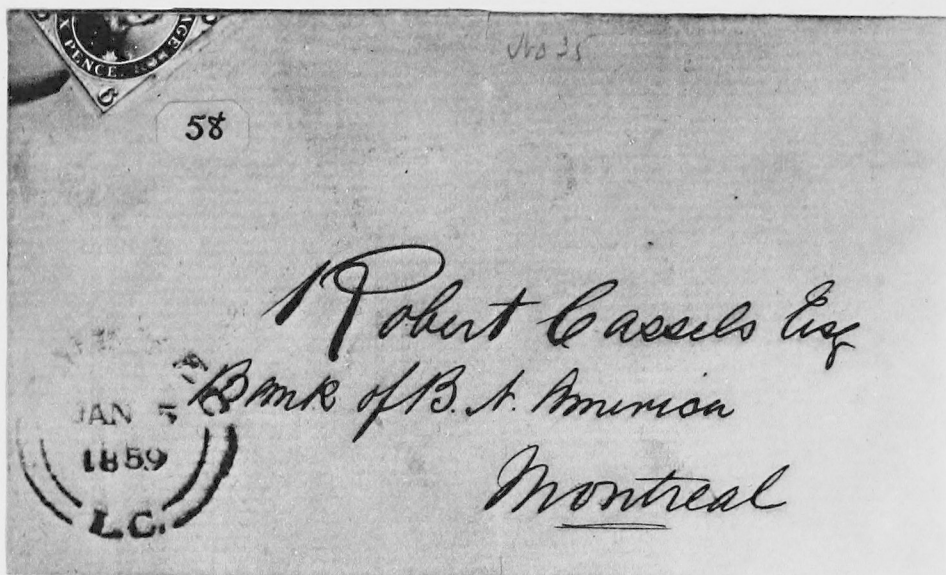 X PENCE AGE
No 35
58
Robert Cassels Esq
Bank of B. N. America
Montreal
JAN
1859
L.C.